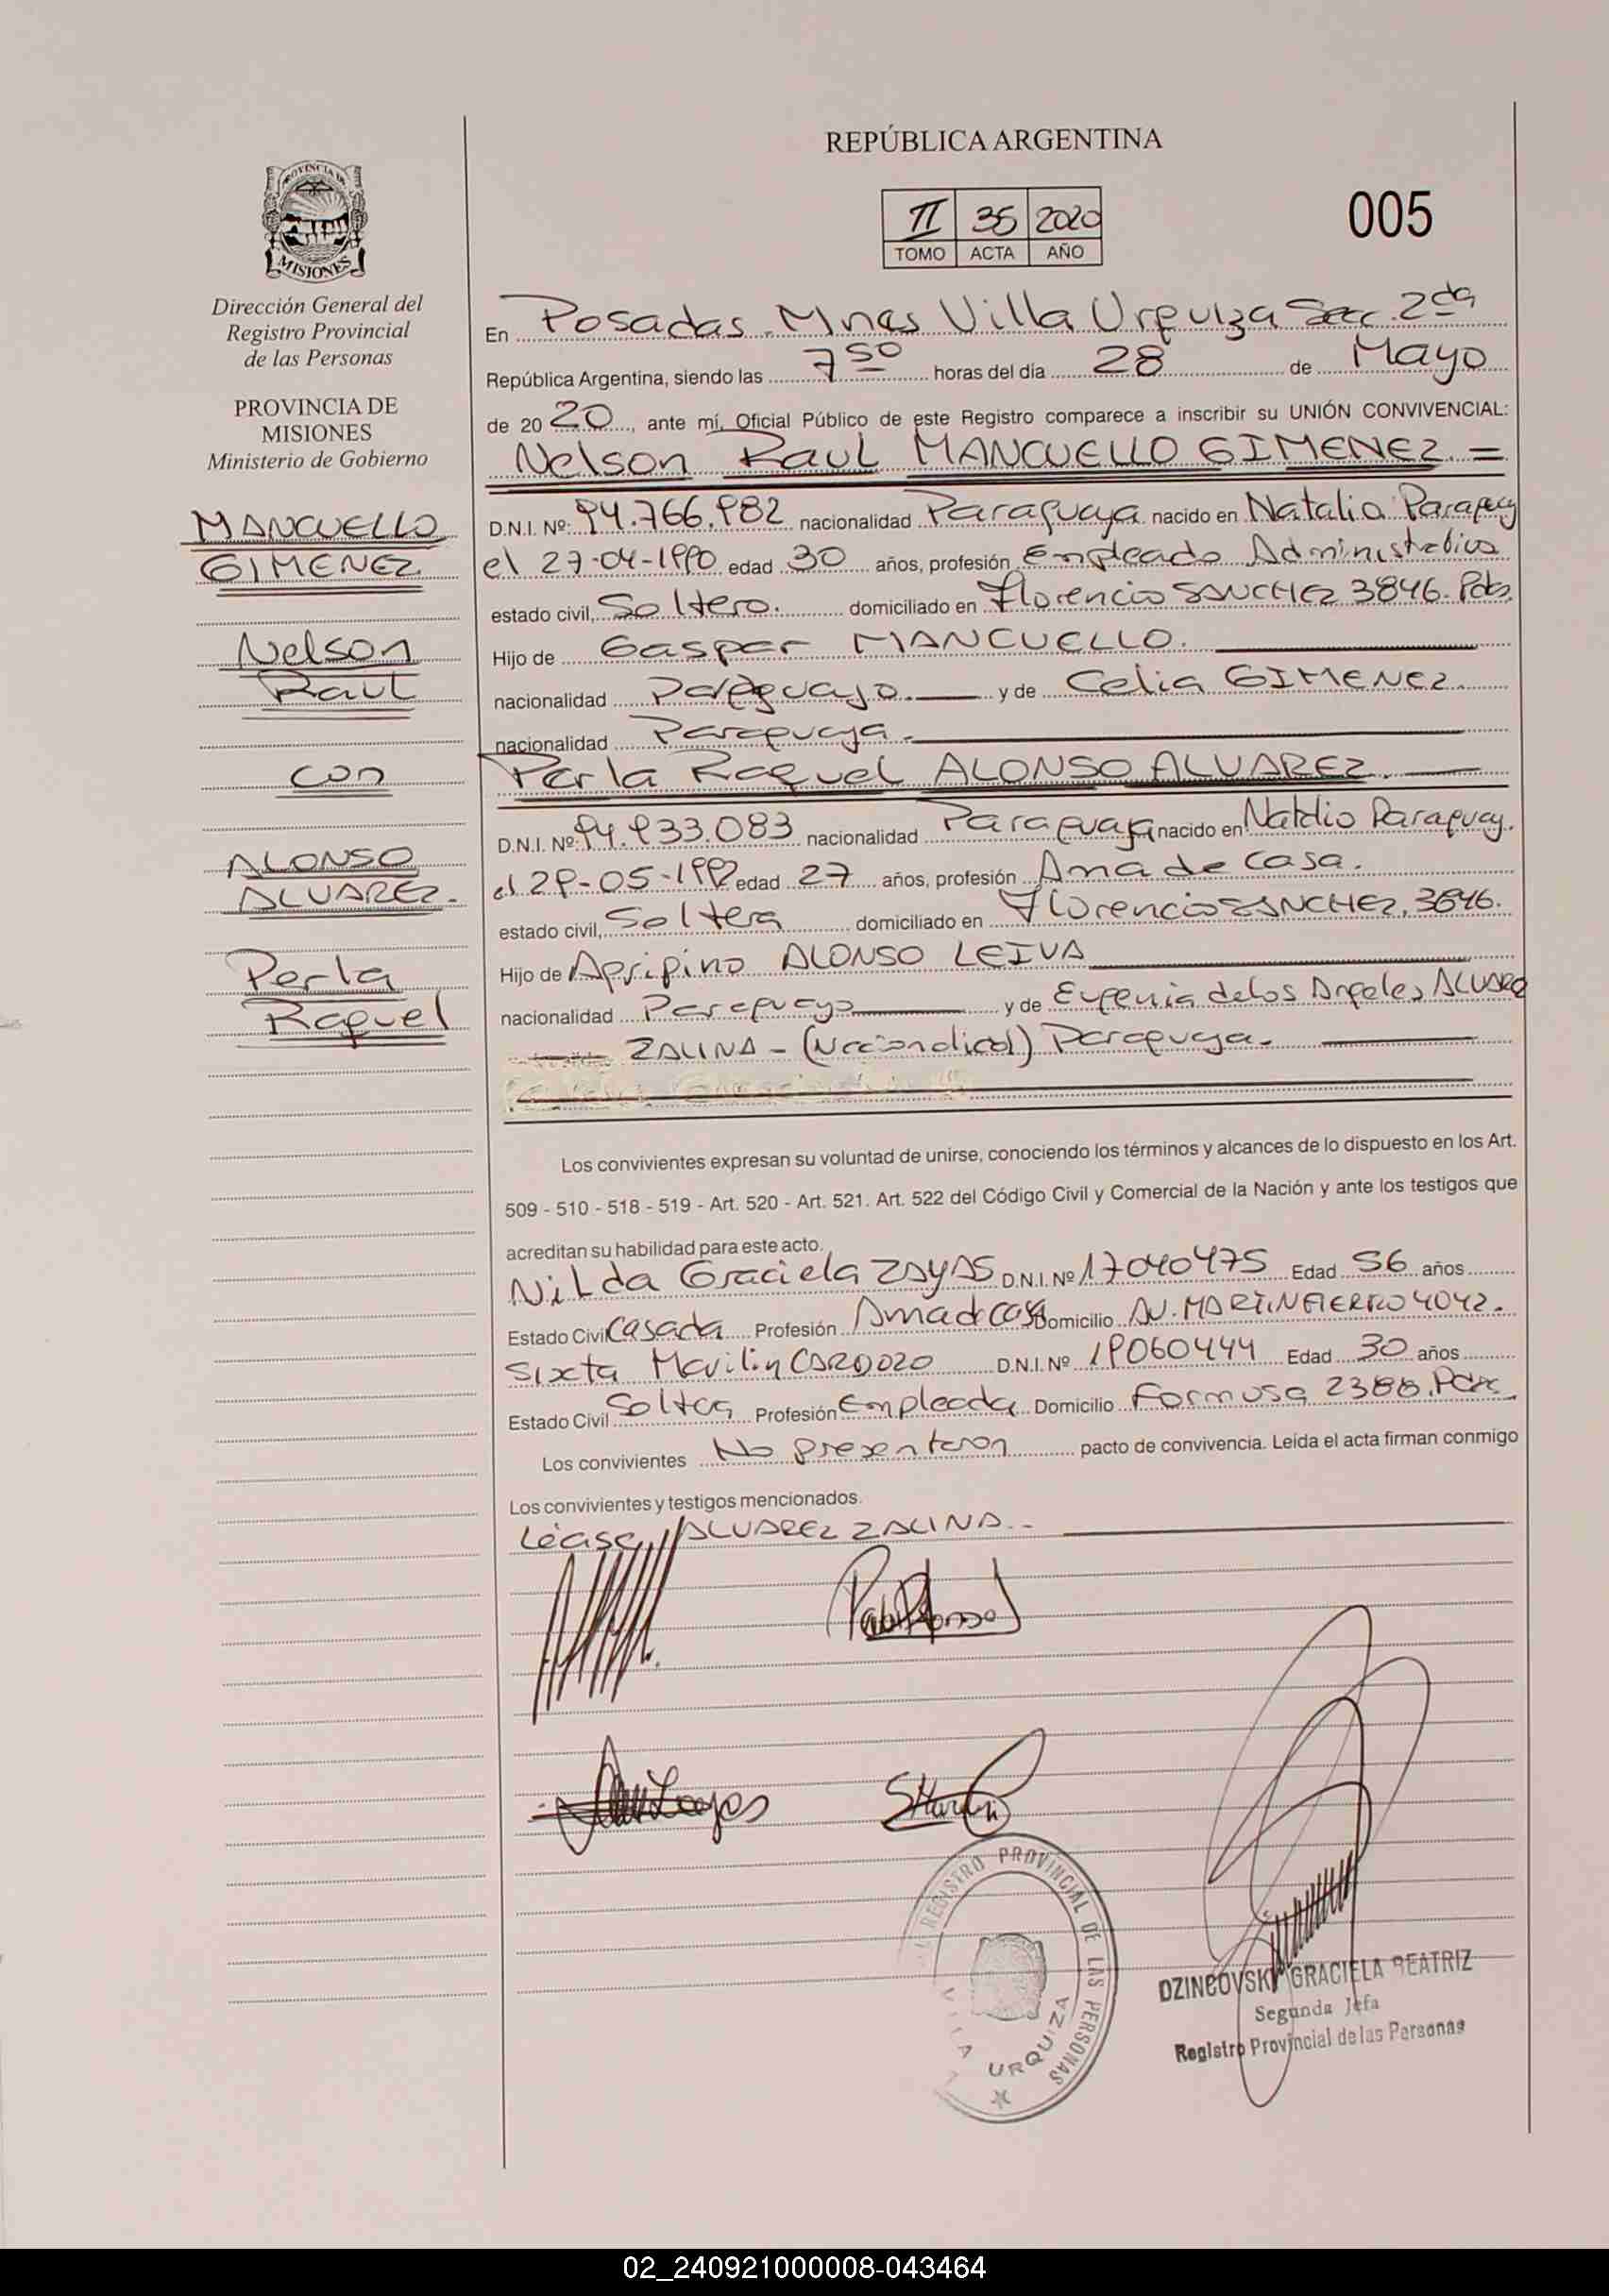 REPÚBLICA ARGENTINA
II 35 2020
TOMO ACTA AÑO
005
PROVINCIA DE
MISIONES
Dirección General del
Registro Provincial
de las Personas
PROVINCIA DE
MISIONES
Ministerio de Gobierno
MANCUELLO
GIMENEZ
Nelson
Raul
con
ALONSO
ALVAREZ.
Perla
Raquel
En Posadas Mnes Villa Urquiza Secc. 2da
República Argentina, siendo las 7 50 horas del día 28 de Mayo
de 20 20, ante mí, Oficial Público de este Registro comparece a inscribir su UNIÓN CONVIVENCIAL:
Nelson Raul MANCUELLO GIMENEZ =
D.N.I. Nº: 94.766.982 nacionalidad Paraguaya nacido en Natalio Paraguay
el 27-04-1990 edad 30 años, profesión Empleado Administrativo
estado civil, Soltero. domiciliado en Florencio SANCHEZ 3846. Pdas.
Hijo de Gaspar MANCUELLO.
nacionalidad Paraguayo. y de Celia GIMENEZ.
nacionalidad Paraguaya.
Perla Raquel ALONSO ALVAREZ.
D.N.I. Nº: 94.933.083 nacionalidad Paraguaya nacido en Natalio Paraguay.
el 29-05-1992 edad 27 años, profesión Ama de casa.
estado civil, Soltera domiciliado en Florencio SANCHEZ, 3846.
Hijo de Agripino ALONSO LEIVA
nacionalidad Paraguayo y de Eugenia de los Angeles ALVAREZ
ZALINA - (Nacionalidad) Paraguaya.
Los convivientes expresan su voluntad de unirse, conociendo los términos y alcances de lo dispuesto en los Art.
509 - 510 - 518 - 519 - Art. 520 - Art. 521. Art. 522 del Código Civil y Comercial de la Nación y ante los testigos que
acreditan su habilidad para este acto.
Nilda Graciela ZAYAS D.N.I. Nº 17040475 Edad 56 años
Estado Civil Casada Profesión Ama de casa Domicilio AV. MARTIN FIERRO 4042.
Sixta Marilin CARDOZO D.N.I. Nº 19060444 Edad 30 años
Estado Civil Soltera Profesión Empleada Domicilio Formosa 2388. Pdas.
Los convivientes No presentaron pacto de convivencia. Leída el acta firman conmigo
Los convivientes y testigos mencionados.
Léase // ALVAREZ ZALINA. -
REGISTRO PROVINCIAL DE LAS PERSONAS
VILLA URQUIZA
DZINCOVSKI GRACIELA BEATRIZ
Segunda Jefa
Registro Provincial de las Personas
02_240921000008-043464